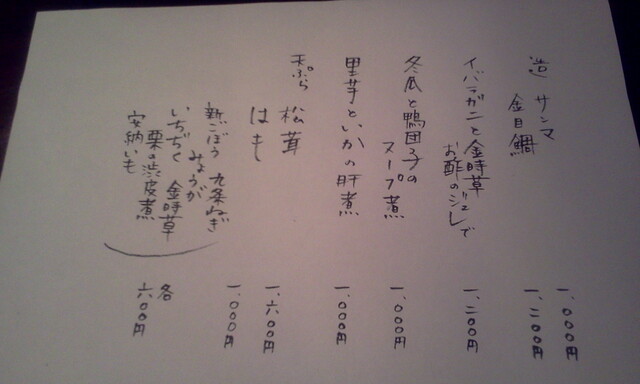 造 サンマ 一、〇〇〇円
金目鯛 一、二〇〇円
イバラガニと金時草
お酢のジュレで 一、二〇〇円
冬瓜と鴨団子の
スープ煮 一、〇〇〇円
里芋といかの肝煮 一、〇〇〇円
天ぷら 松茸 一、六〇〇円
はも 一、〇〇〇円
新ごぼう 九条ねぎ
みょうが
いちぢく 金時草
栗の渋皮煮
安納いも
各
六〇〇円